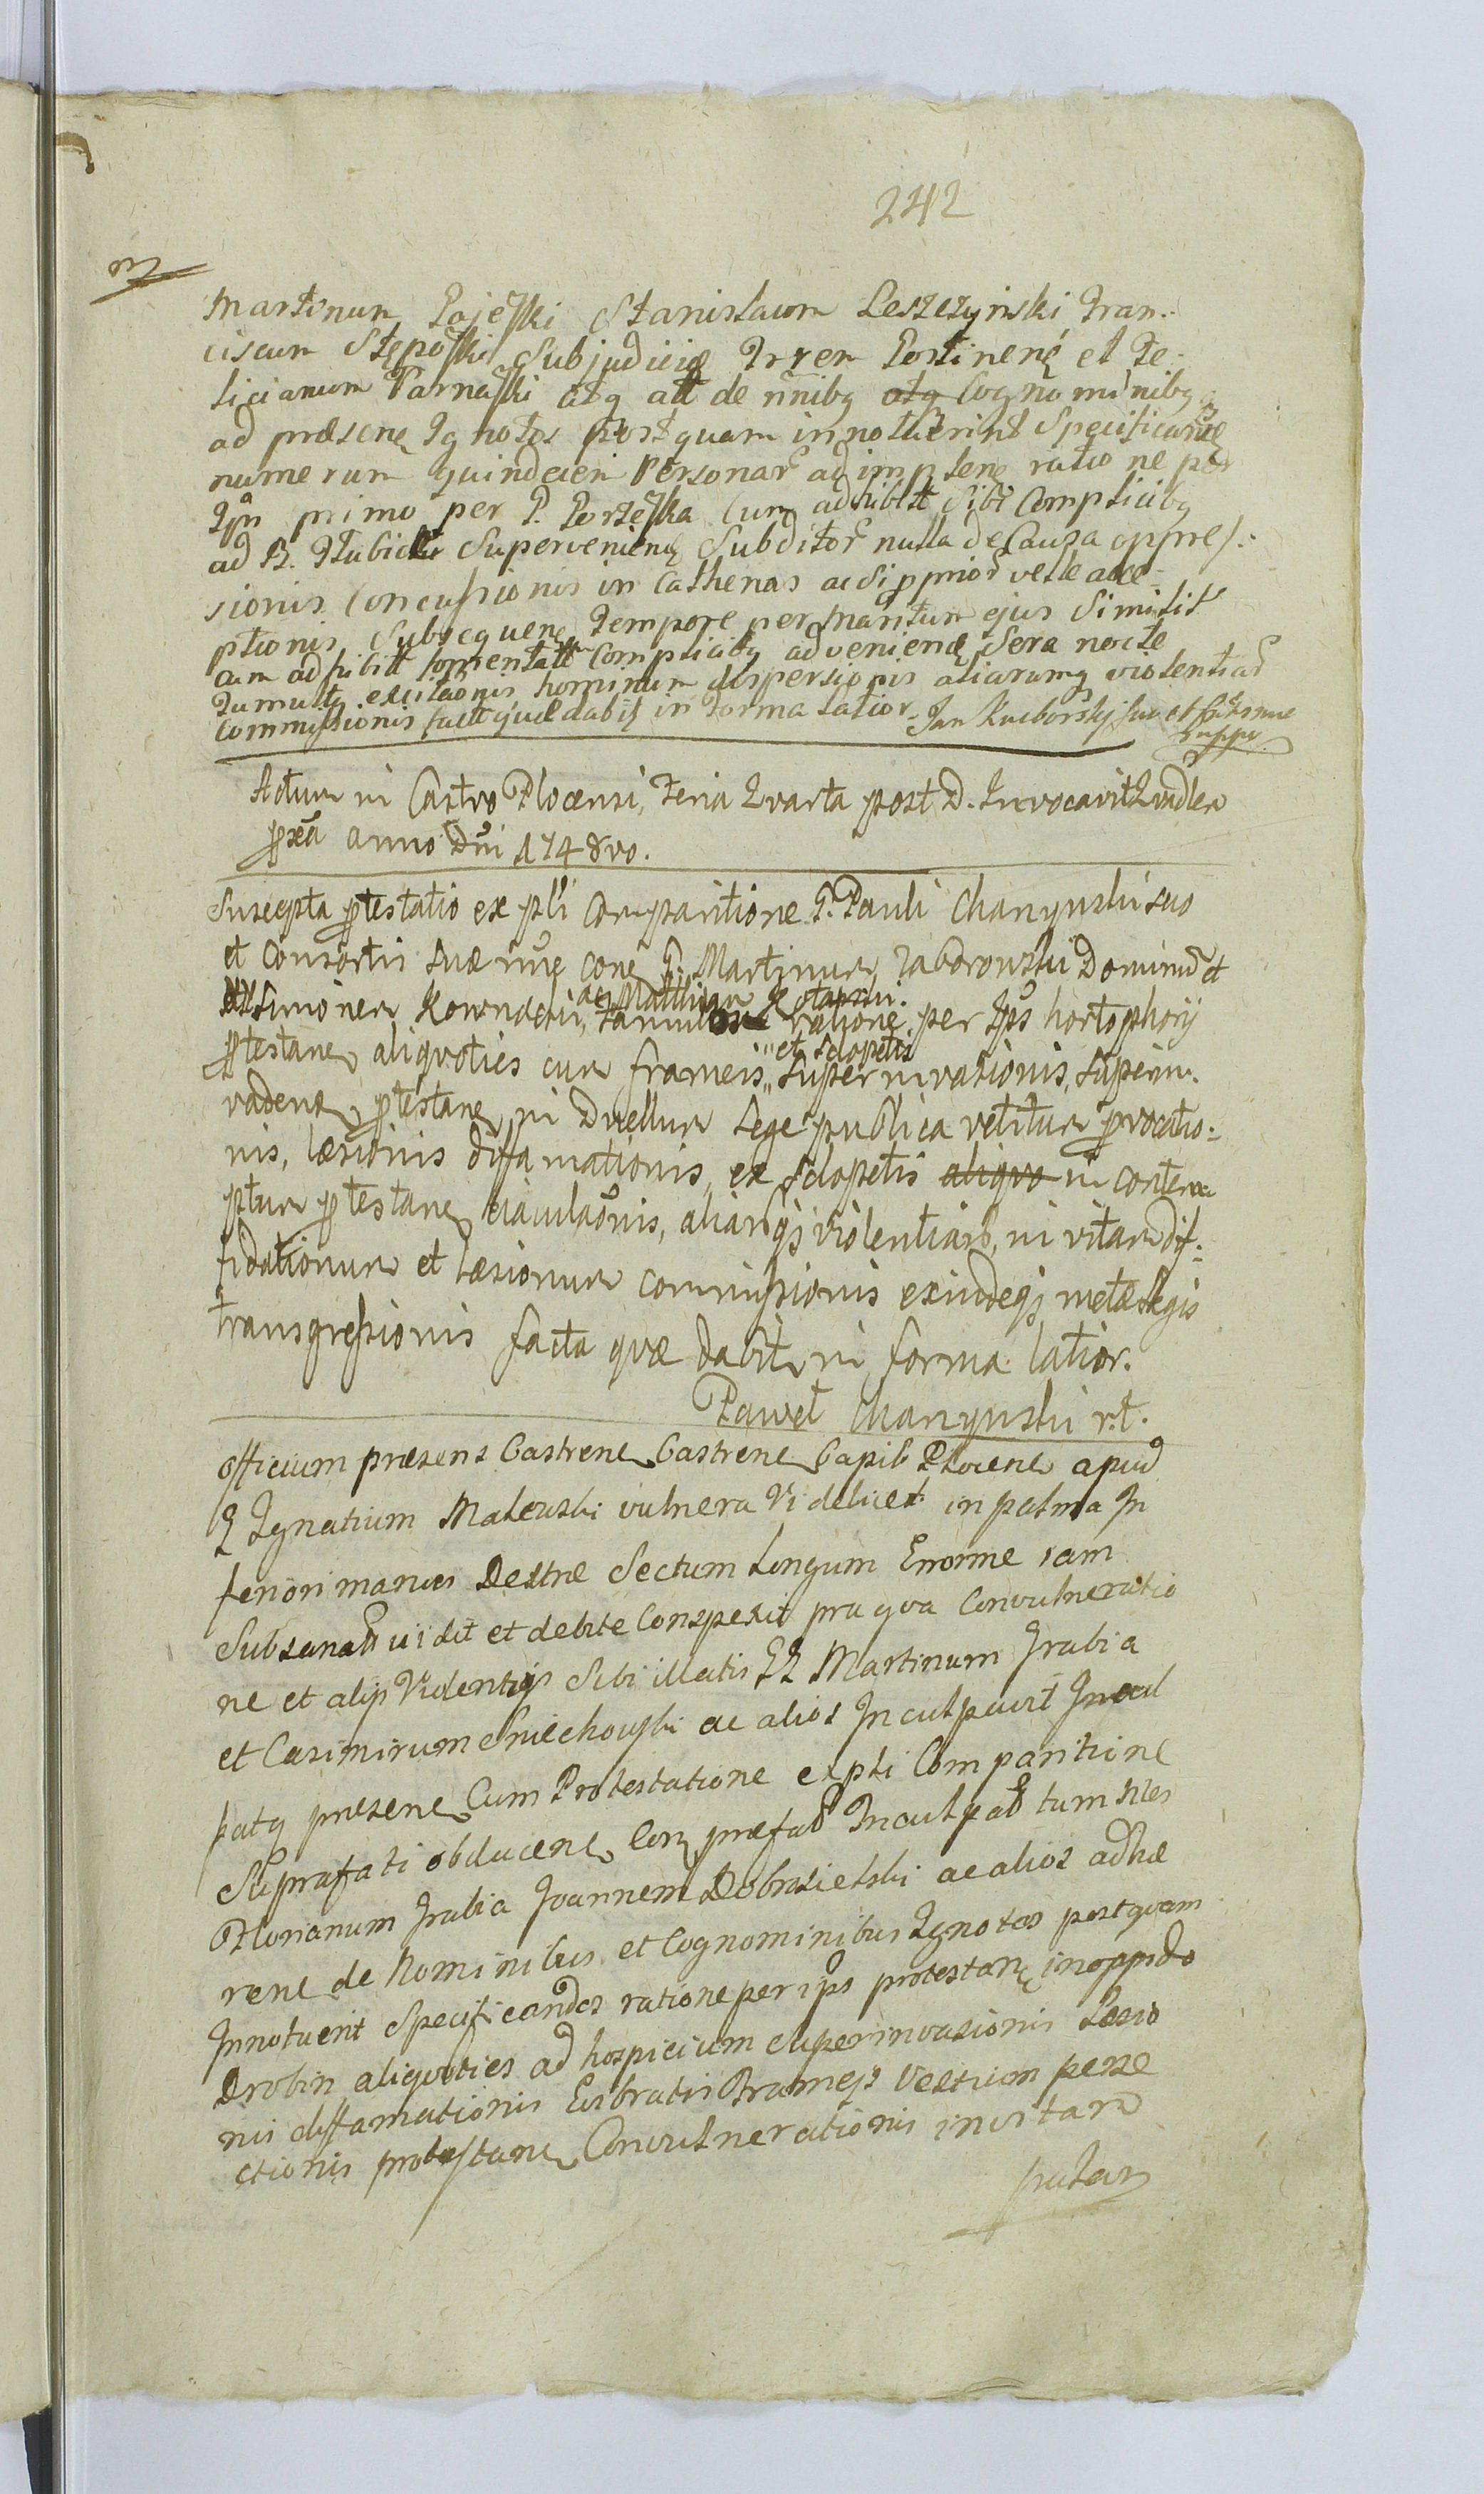 242
Martinum Pajeſki Stanislaum Leszczyinski Fran:
ciscum Stępoſki Subjudicię Pertinenę et Fe:
licianum Parnaſki atq all de nnibq atq Cognominibq
ad præsenę Ignotos postquam innotuerint Specificandę
numerum quindecim Personar adimplenę ratione per
Ipũ primo per P. Porzeſka Cum adhibit Sibi Complicibq
ad B. Supervenienę Subditor nulla de Causa oppreſ:
sionis Concuſsionis in Cathenas ac Si pprior vele acce:
ptionis Subsequenę Tempore per Maritum ejus Similit
cum adhibit fomentatt Complicibq advenienę Sera nocte
Tumultq excitãonis hominum dispersionis aliarumq violentiar
Commiſsionis fact quæ dabit in Forma latior. Jan Kucborskj suo et
Actum in Castro Plocensi, Feria Quarta post D. Invocavit Qvadlem
pxa anno Dñi 1748vo.
Suscepta ptestatio ex pli comparitione G. Pauli Changynski suo
et Consortis suæ nõe conę G. Martinum Zaborowski Dominũ et
ac Matthiam
Simonem Kownacki, Famulos ratione per Ips hortophorij
et sclopetis
ptestanę aliqvoties cum frameis „ superinvasionis, superin:
vadenę ptestanę in Duellum Lege publica vetitum provocatio:
nis, læsionis diffamationis, ex sclopetis aliqvo in contem
ptum ptestanę eiaculaõnis, aliarqj violentiarũ, in vitam dif:
fidationum et læsionum commiſsionis exindeqj metæ Legis
transgreſsionis facta qvæ dabit in forma latior.
Paweł Changynski r.t.
Officium præsens Castrenę Castrenę Capit Plocenę apud
G Ignatium Malewski vulnera Videlicet in palma In
feriori manus Dextræ Sectum Longum Enorme iam
Subsanatt vidit et debite Conspexit pro qva Convulneratio
ne et alijs Violentijs Sibi illatis GG Martinum Grabia
et Casimirum Smiechowſki ac alios Inculpavit Incul
patq presenę Cum Protestatione ex pli Comparitione
Suprafati obducenę Conę præfatt Inculpatt tum Nles
Florianum Grabia Joannem Dobrosielski ac alios adhæ
renę de Nominibus et Cognominibus Ignotos postqvam
Innotuerit Specificandos ratione per ips protestanę in oppido
Drobin aliqvoties ad hospicium Superinvasionis Lesio
nis diffamationis Evibratis Frameis Vestium perse
ctionis protestanę Convulnerationis in vitam